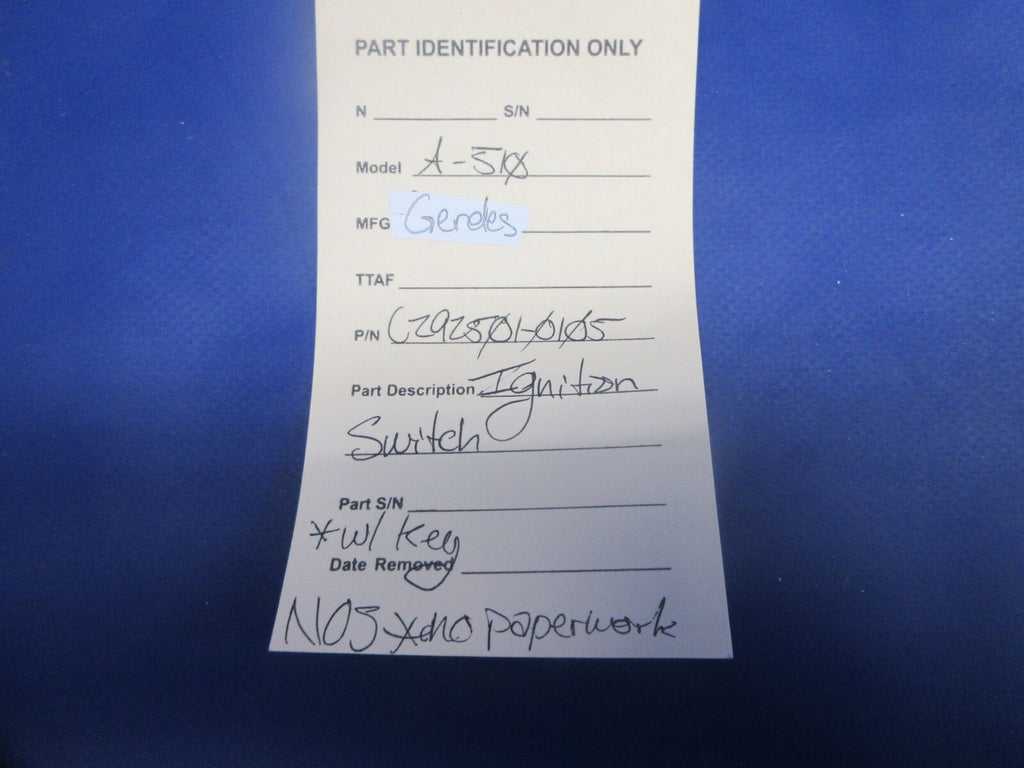 PART IDENTIFICATION ONLY
N S/N
Model A-510
MFG Gerdes
TTAF
P/N C292501-0105
Part Description Ignition
Switch
Part S/N
*w/ Key
Date Removed
NOS no paperwork